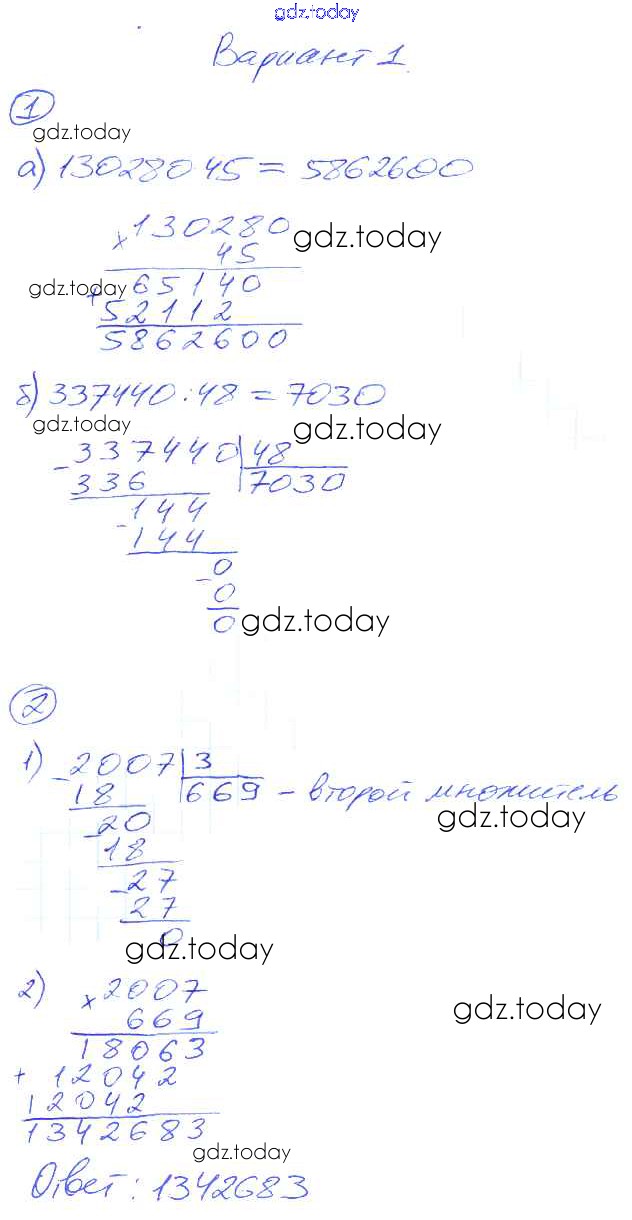 gdz.today
Вариант 1
1
gdz.today
а) 130280·45 = 5862600
× 130280
45
gdz.today
gdz.today
+ 65140
52112
5862600
б) 337440 : 48 = 7030
gdz.today
gdz.today
- 337440 | 48
336 7030
- 144
144
- 0
0
0
gdz.today
2
1) - 2007 | 3
18 669 - второй множитель
gdz.today
- 20
18
- 27
27
0
gdz.today
2) × 2007
669
gdz.today
18063
+ 12042
12042
1342683
gdz.today
Ответ: 1342683